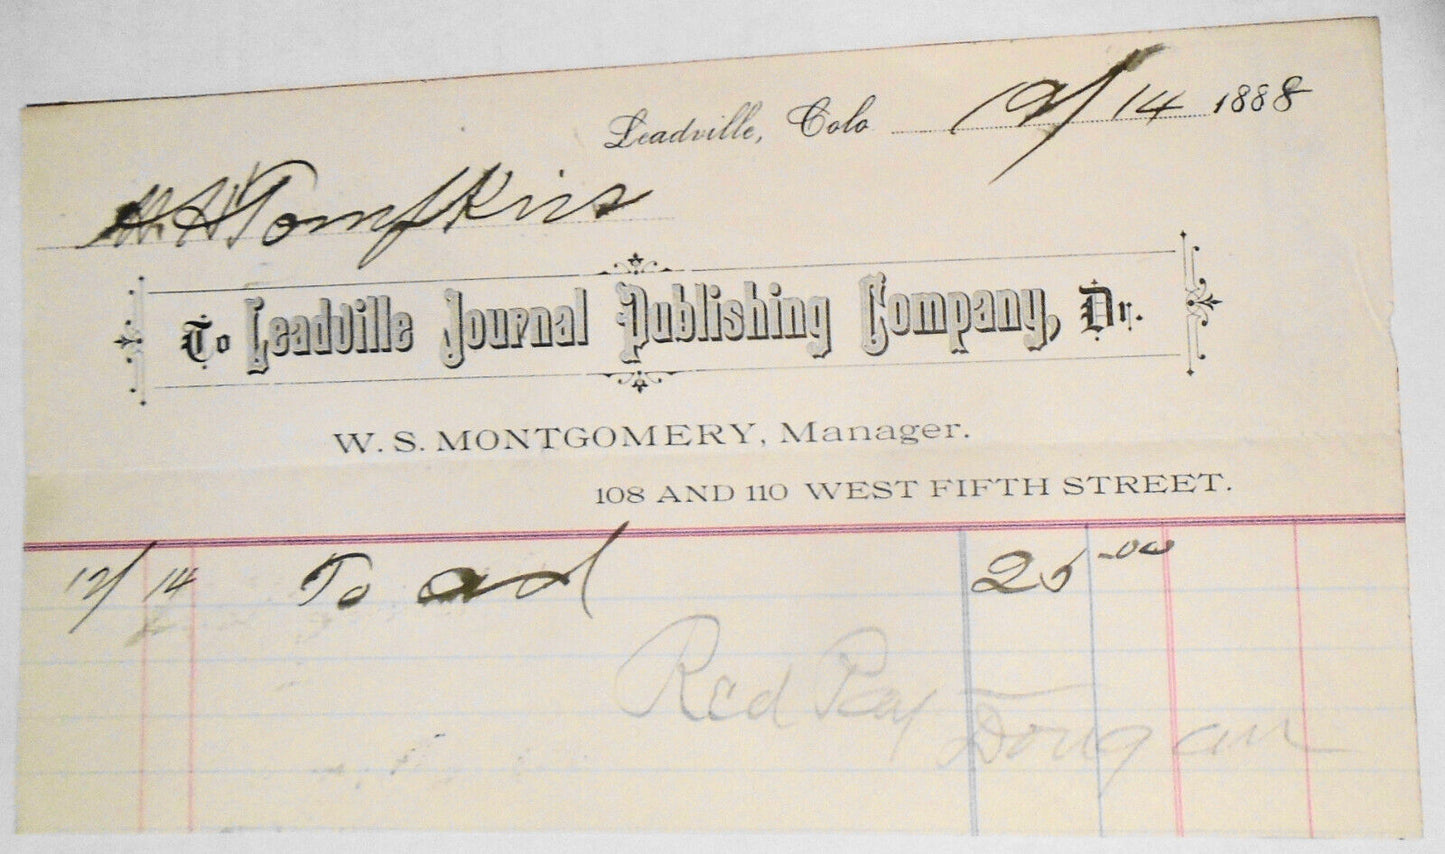 Leadville, Colo 12/14 1888
Tompkins
To Leadville Journal Publishing Company, Dr.
W. S. MONTGOMERY, Manager.
108 AND 110 WEST FIFTH STREET.
12/14 To ad 25.00
Recd Pay
Dougan